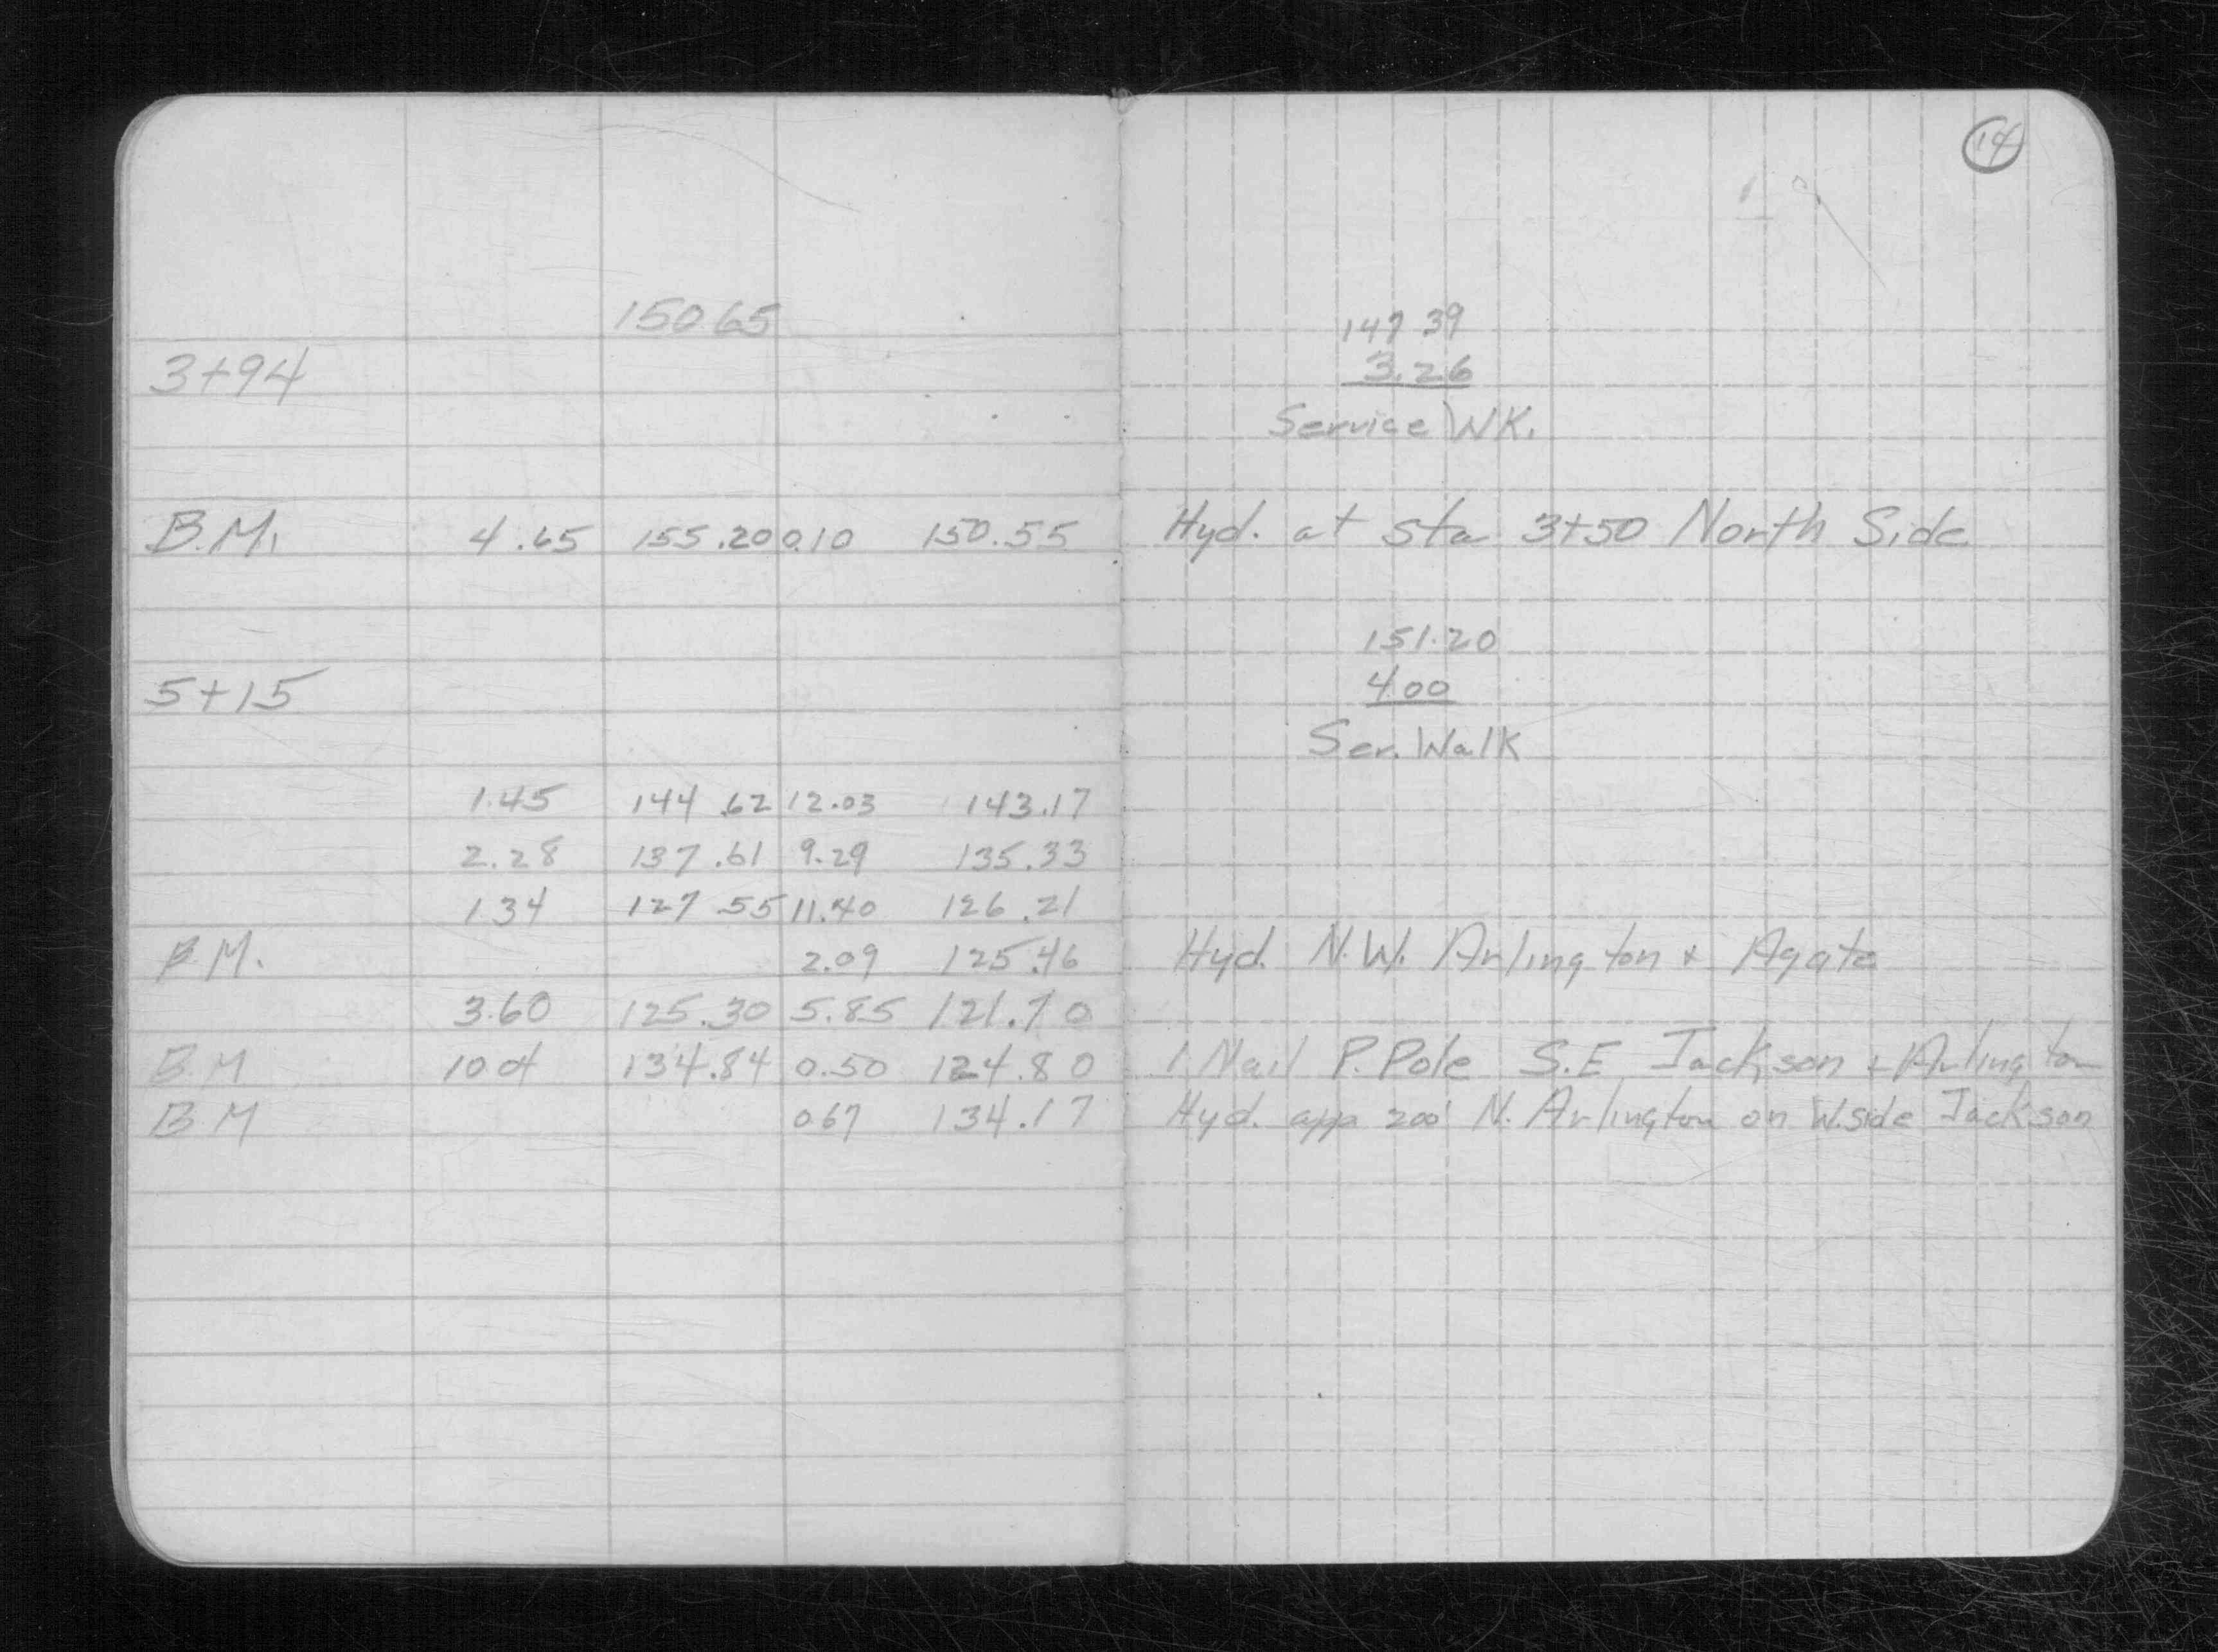 14
150.65 147.39
3+94 3.26
Service WK.
B.M. 4.65 155.20 0.10 150.55 Hyd. at sta 3+50 North Side
151.20
5+15 4.00
Ser. Walk
1.45 144.62 12.03 143.17
2.28 137.61 9.29 135.33
1 34 127 55 11.40 126.21
B.M. 2.09 125.46 Hyd. N.W. Arlington + Agate
3.60 125.30 5.85 121.70
B.M 10 04 134.84 0.50 124.80 1 Nail P. Pole S.E Jackson + Arlington
B M 0 67 134.17 Hyd. app 200' N. Arlington on W. side Jackson